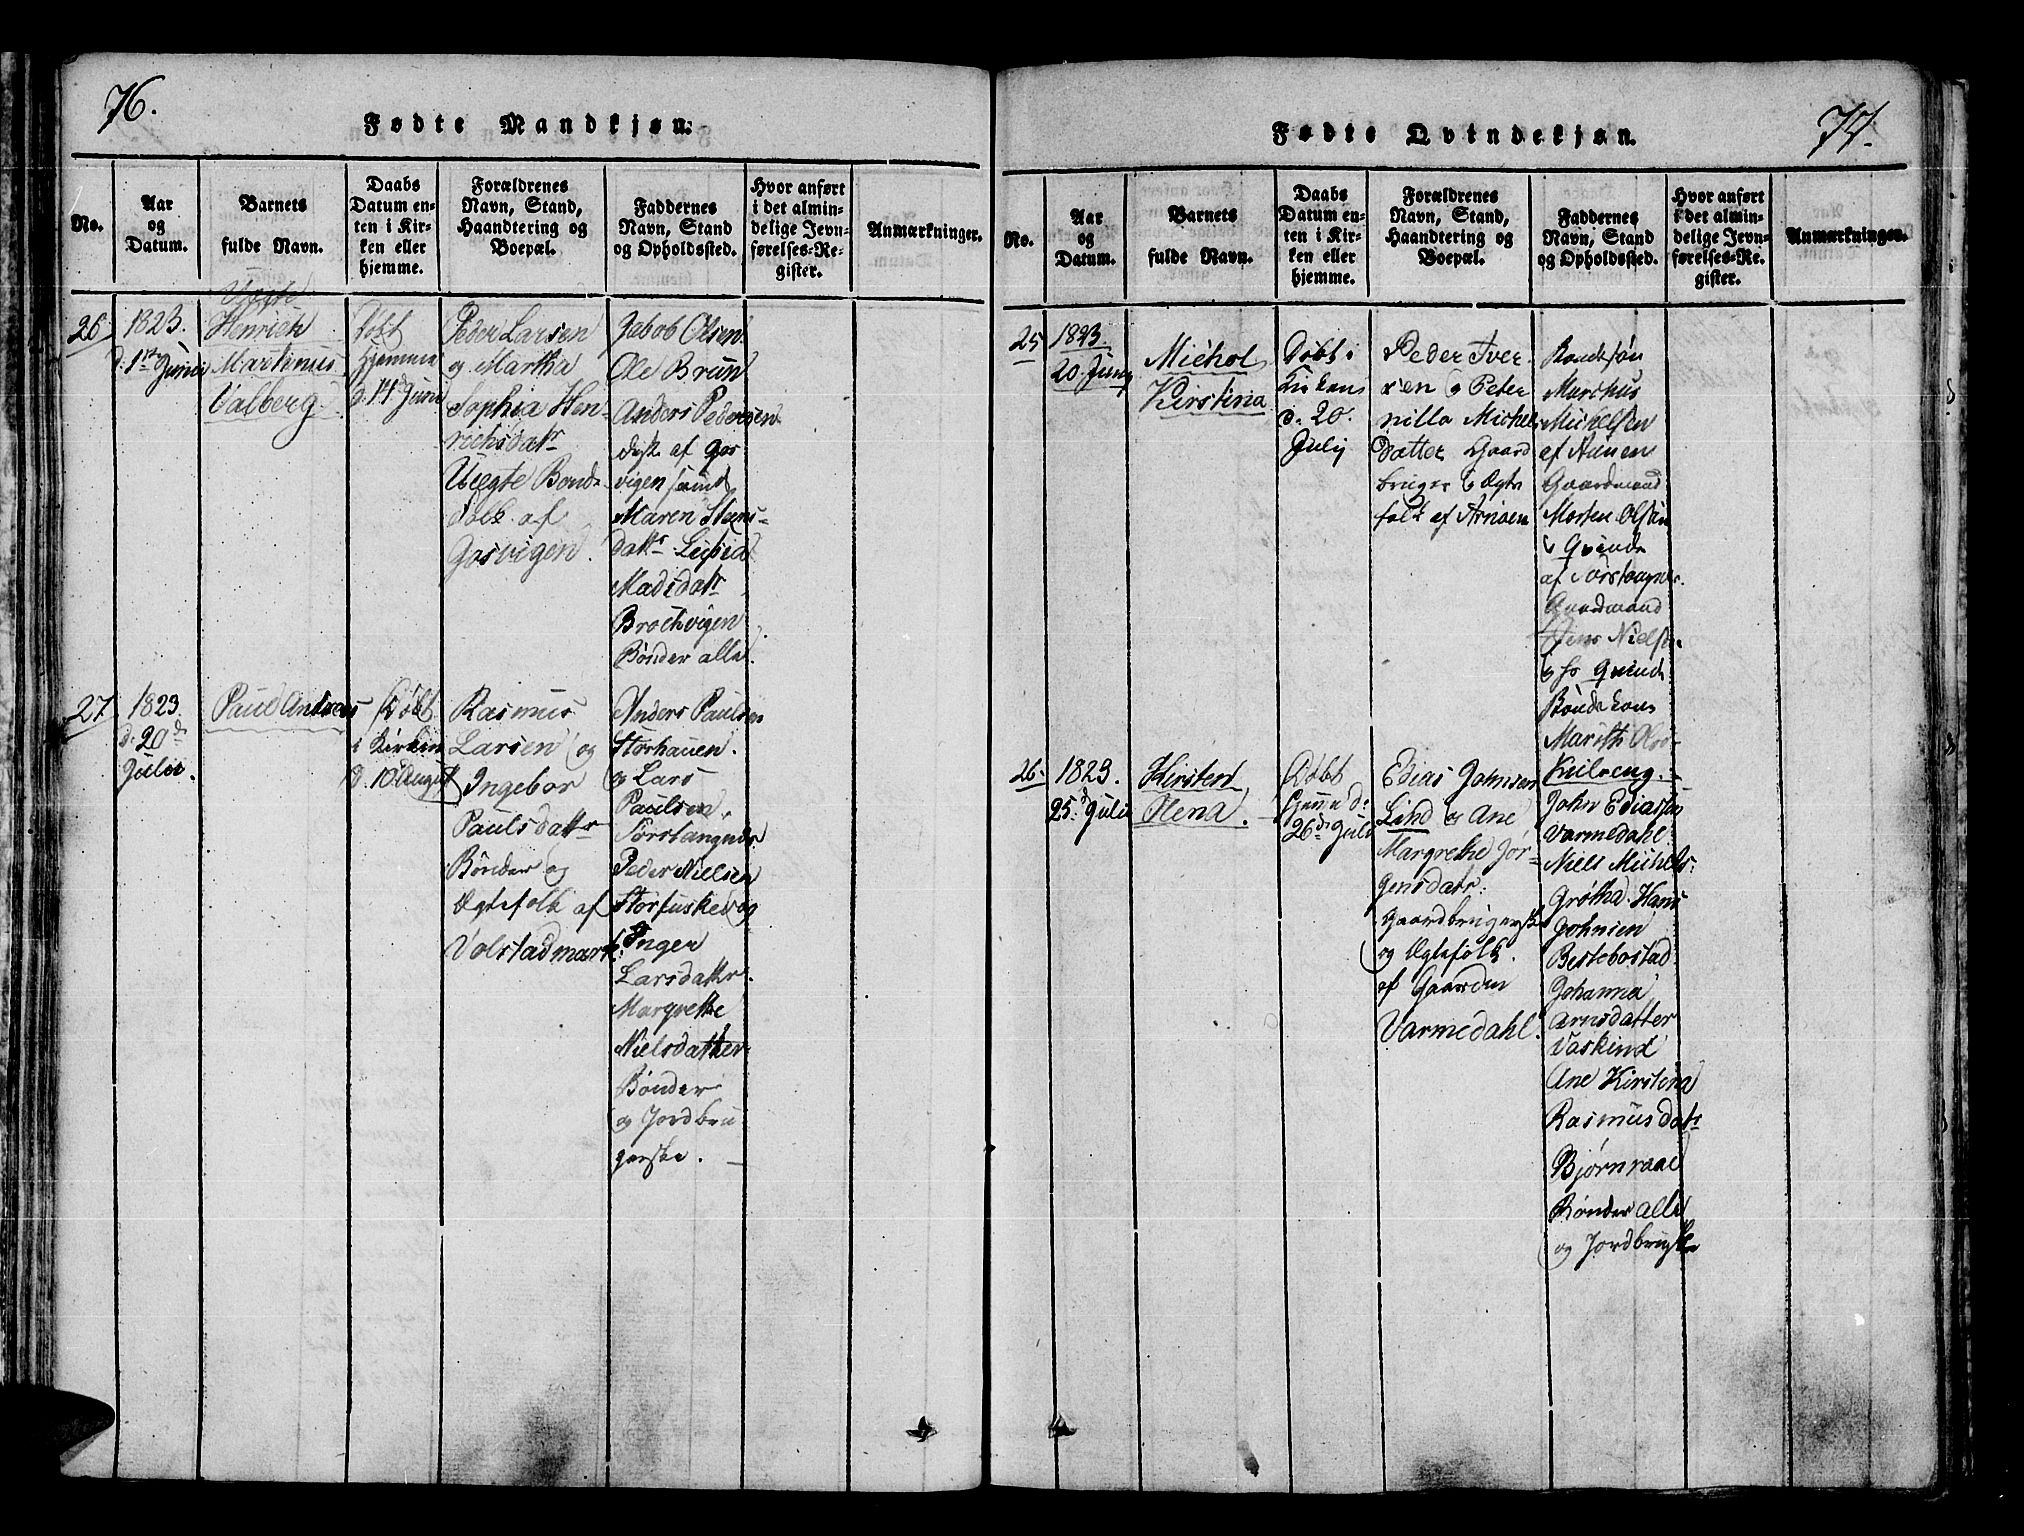 76.
Fødte Mandkjøn.
No.
Aar
og
Datum.
Barnets
fulde Navn.
Daabs
Datum en-
ten i Kir-
ken eller
hjemme.
Forældrenes
Navn, Stand,
Haandtering og
Boepæl.
Faddernes
Navn, Stand
og Opholdssted.
Hvor anført
i det almin-
delige Jevn-
førelses-Re-
gister.
Anmærkninger.
26
1823.
d: 1ste Junii
Uegte
Henrich
Martinus
Valberg.
Døbt
hjemme
d. 14 Junii
Peder Larsen
og Martha
Sophia Hen-
richsdatr
Uegte Bonde
Folk af
Gosvigen.
Jacob Olsen
Ole Brun
Anders Pedersen
af Gos-
vigen samt
Maren Steens-
datr
Madsdatr
Brochvigen
Bønder alle.
27
1823.
d. 20de
Julii.
Paul Andreas
Døbt
i Kirken
d. 10 August
Rasmus
Larsen og
Ingebor
Paulsdatr
Bønder og
Ægtefolk af
Volstadmark.
Anders Paulsen
Storhauen.
og Lars
Paulsen
Torstangnes
Peder Nielsen
Storfuskev og
Inger
Larsdattr.
Margrethe
Nielsdatter
Bønder
og Jordbru
gerske.
77.
Fødte Qvindekjøn.
No.
Aar
og
Datum.
Barnets
fulde Navn.
Daabs
Datum en-
ten i Kir-
ken eller
hjemme.
Forældrenes
Navn, Stand,
Haandtering og
Boepæl.
Faddernes
Navn, Stand
og Opholdssted.
Hvor anført
i det almin-
delige Jevn-
førelses-Re-
gister.
Anmærkninger.
25
1823
20. Juny
Michol
Kirstina
Døbt i
Kirken
d. 20.
Julij
Peder Iver
sen og Peter
nilla Michels
Datter Gaard
bruger og Ægte
folk af Arnøen
Bondesøn
Marthus
Michelsen
af Aanen
Gaardmand
Morten Olsen
& Qvinde
af Torstangnes.
Gaardmand
Jens Nielsen
& hs Qvinde
Bonde kone
Marith Ols-
Kvilveng.
26.
1823.
25de Julii
Kirsten
Elena.
Døbt
Hjemme d:
26de Julii
Edias Johnsen
Lind og Ane
Margrethe Jør-
gensdatr:
Gaardbrugerske
og Ægtefolk.
af Gaarden
Varmedahl.
John Ediassen
Varmedahl.
Niels Michels:
Grøtha. Hans
Johnsen
Bestebostad
Johanna
Arnsdatter
Vaskind
Ane Kirstina
Rasmusdatr
Bjørnraae
Bønder alle
og Jordbrugske